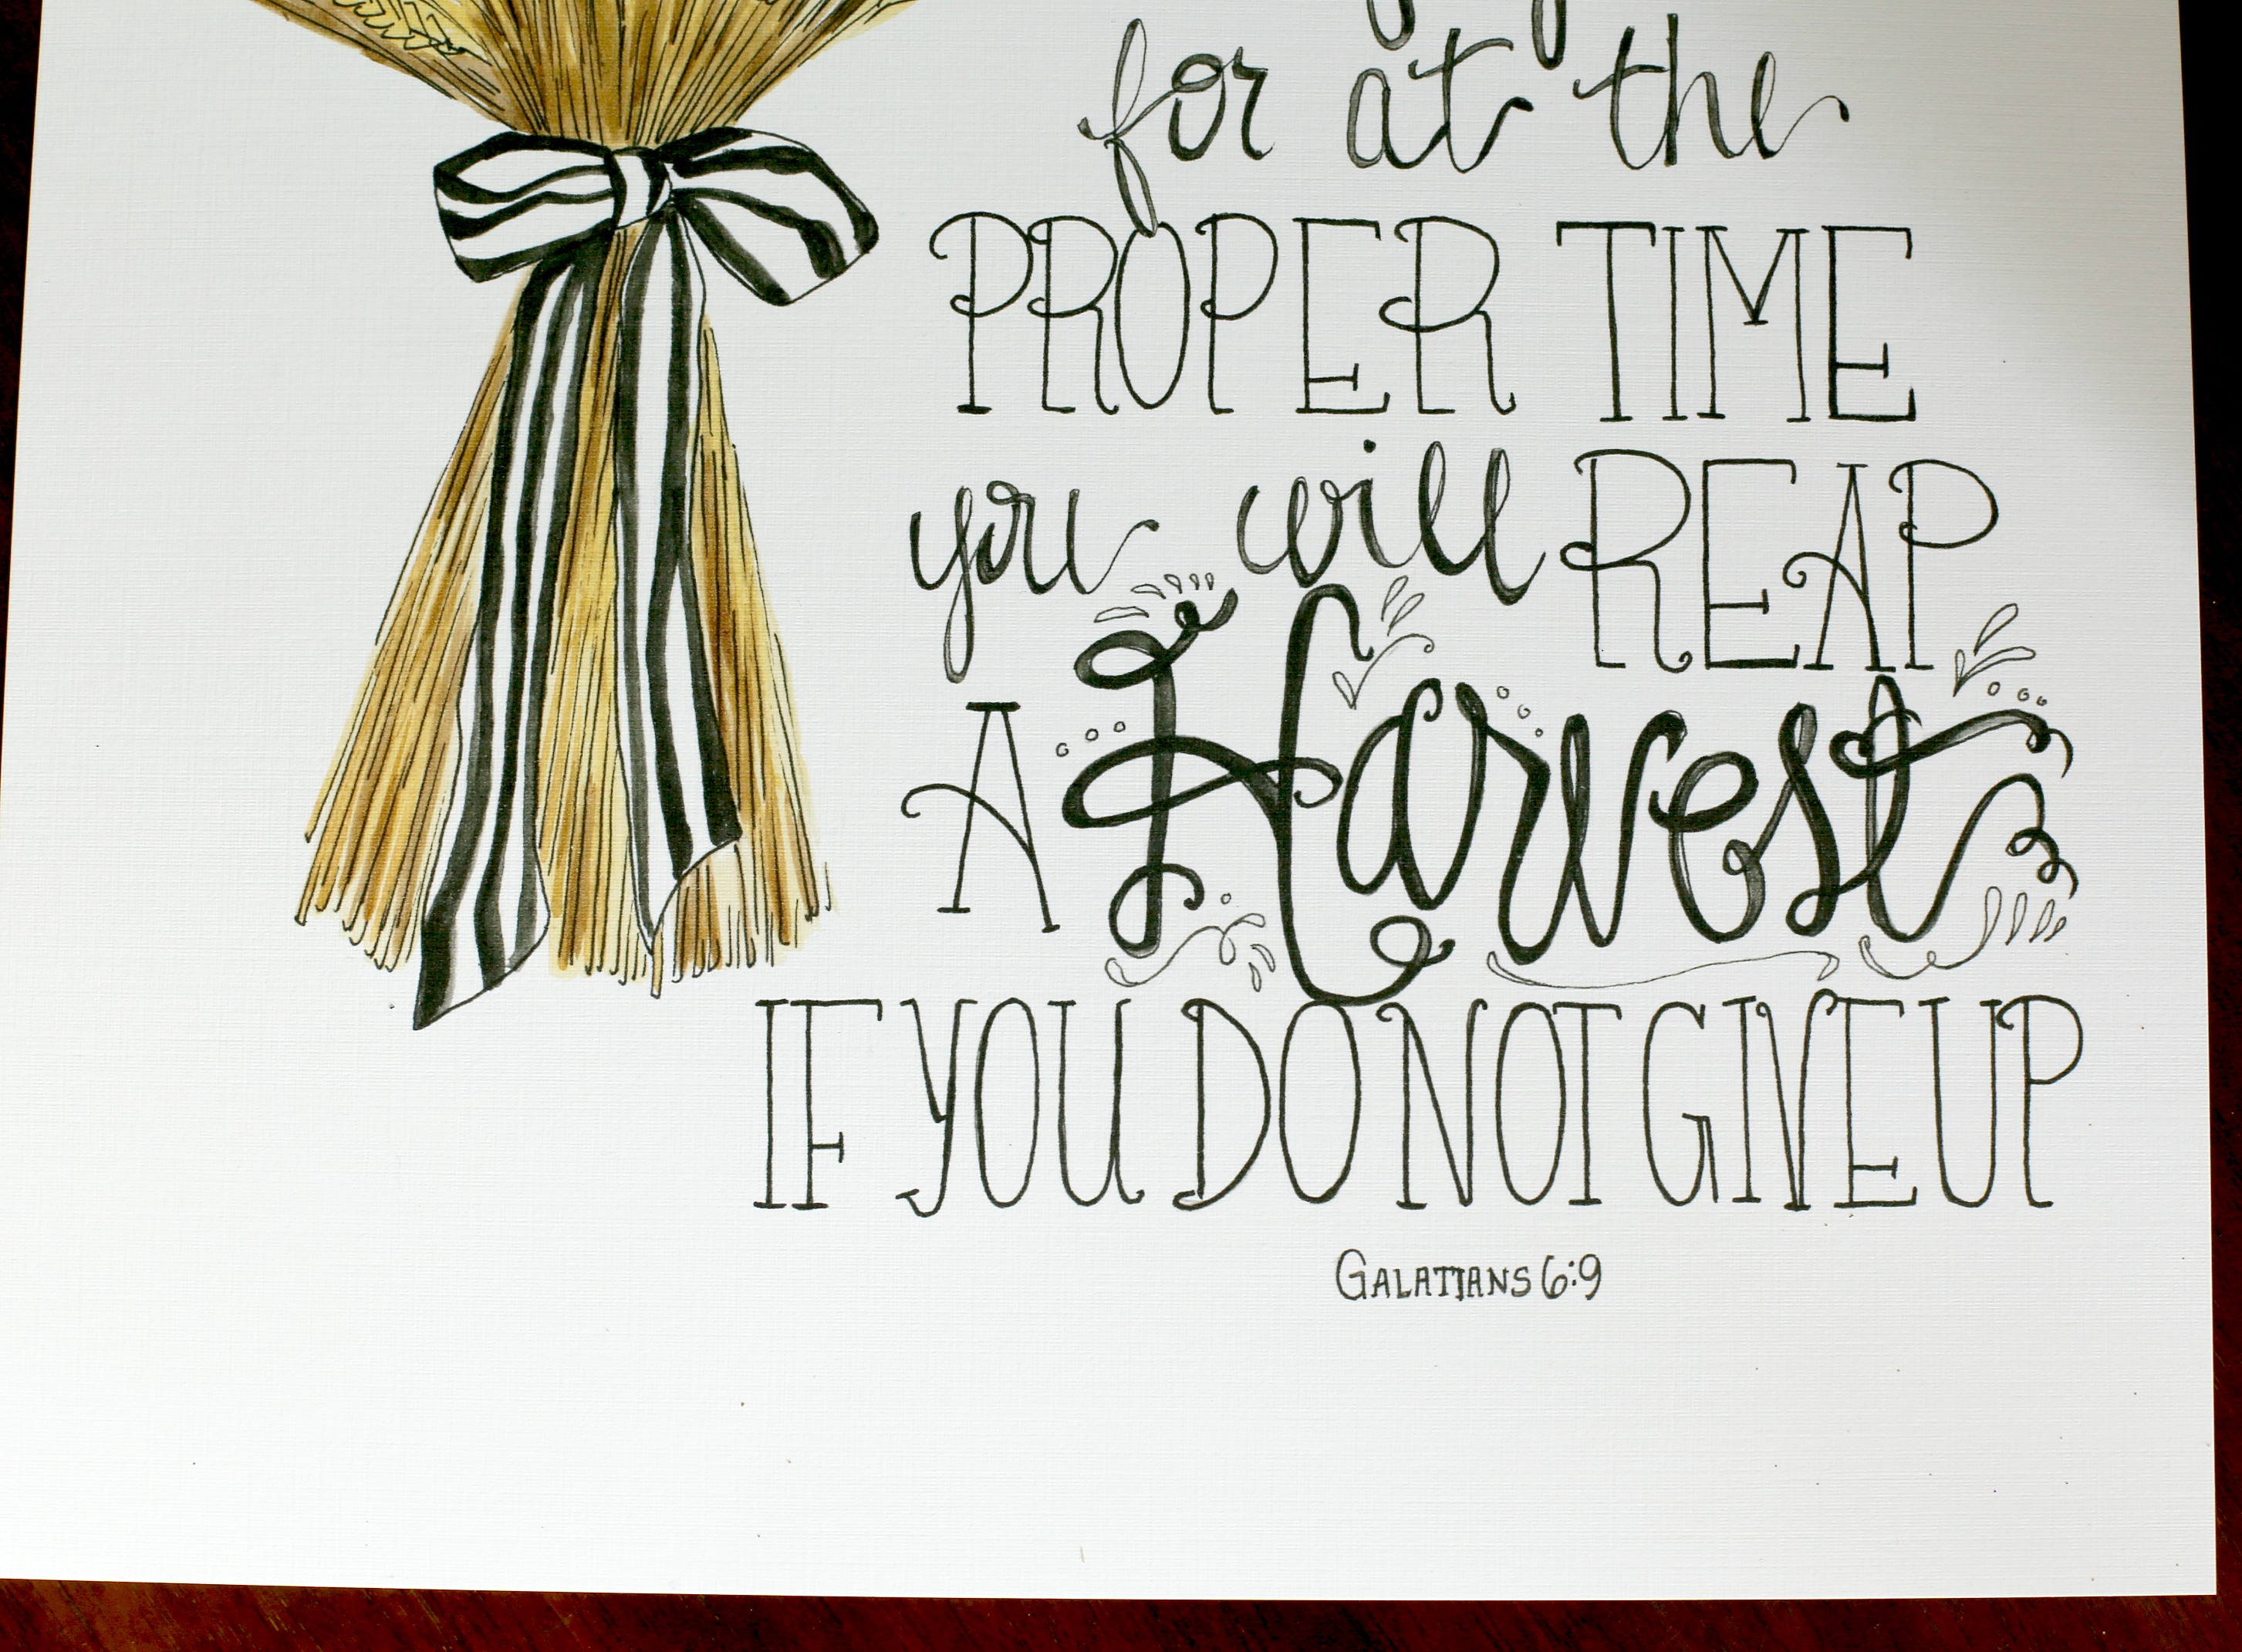 for at the
PROPER TIME
you will REAP
A Harvest
IF YOU DO NOT GIVE UP
GALATIANS 6:9